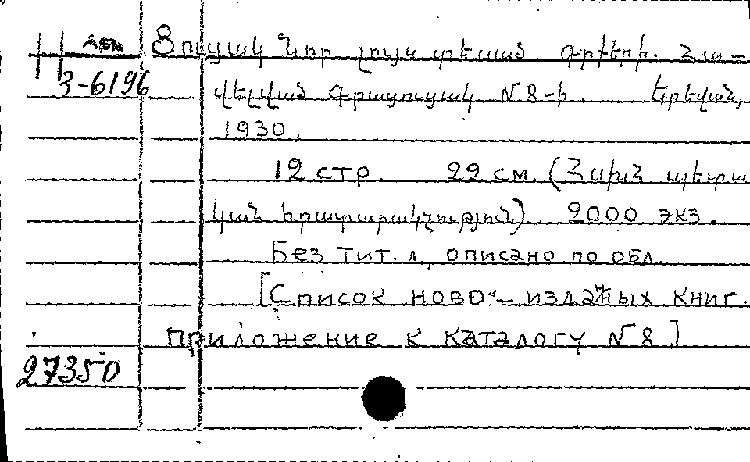 Ցուցակ նոր լույս տեսած գրքերի. Հա-
3-6196
վելված գրացուցակ N8-ի. Երեվան,
1930.
12 стр. 22 см. (ՀՍԽՀ պետա
կան հրատարակչություն) 2000 экз.
Без тит. л., описано по обл.
[Список ново-изданых книг.
Приложение к каталогу N8]
27350